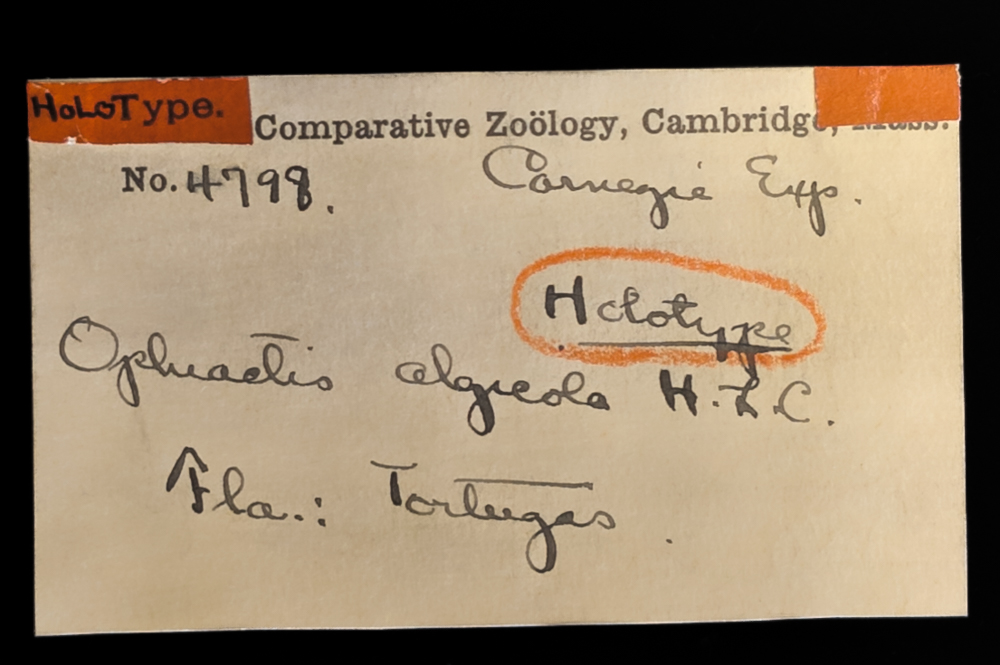 HoLoType.
Comparative Zoölogy, Cambridge, Mass.
No. 4798.
Carnegie Exp.
Holotype
Ophiactis algicola H.L.C.
Fla.: Tortugas.